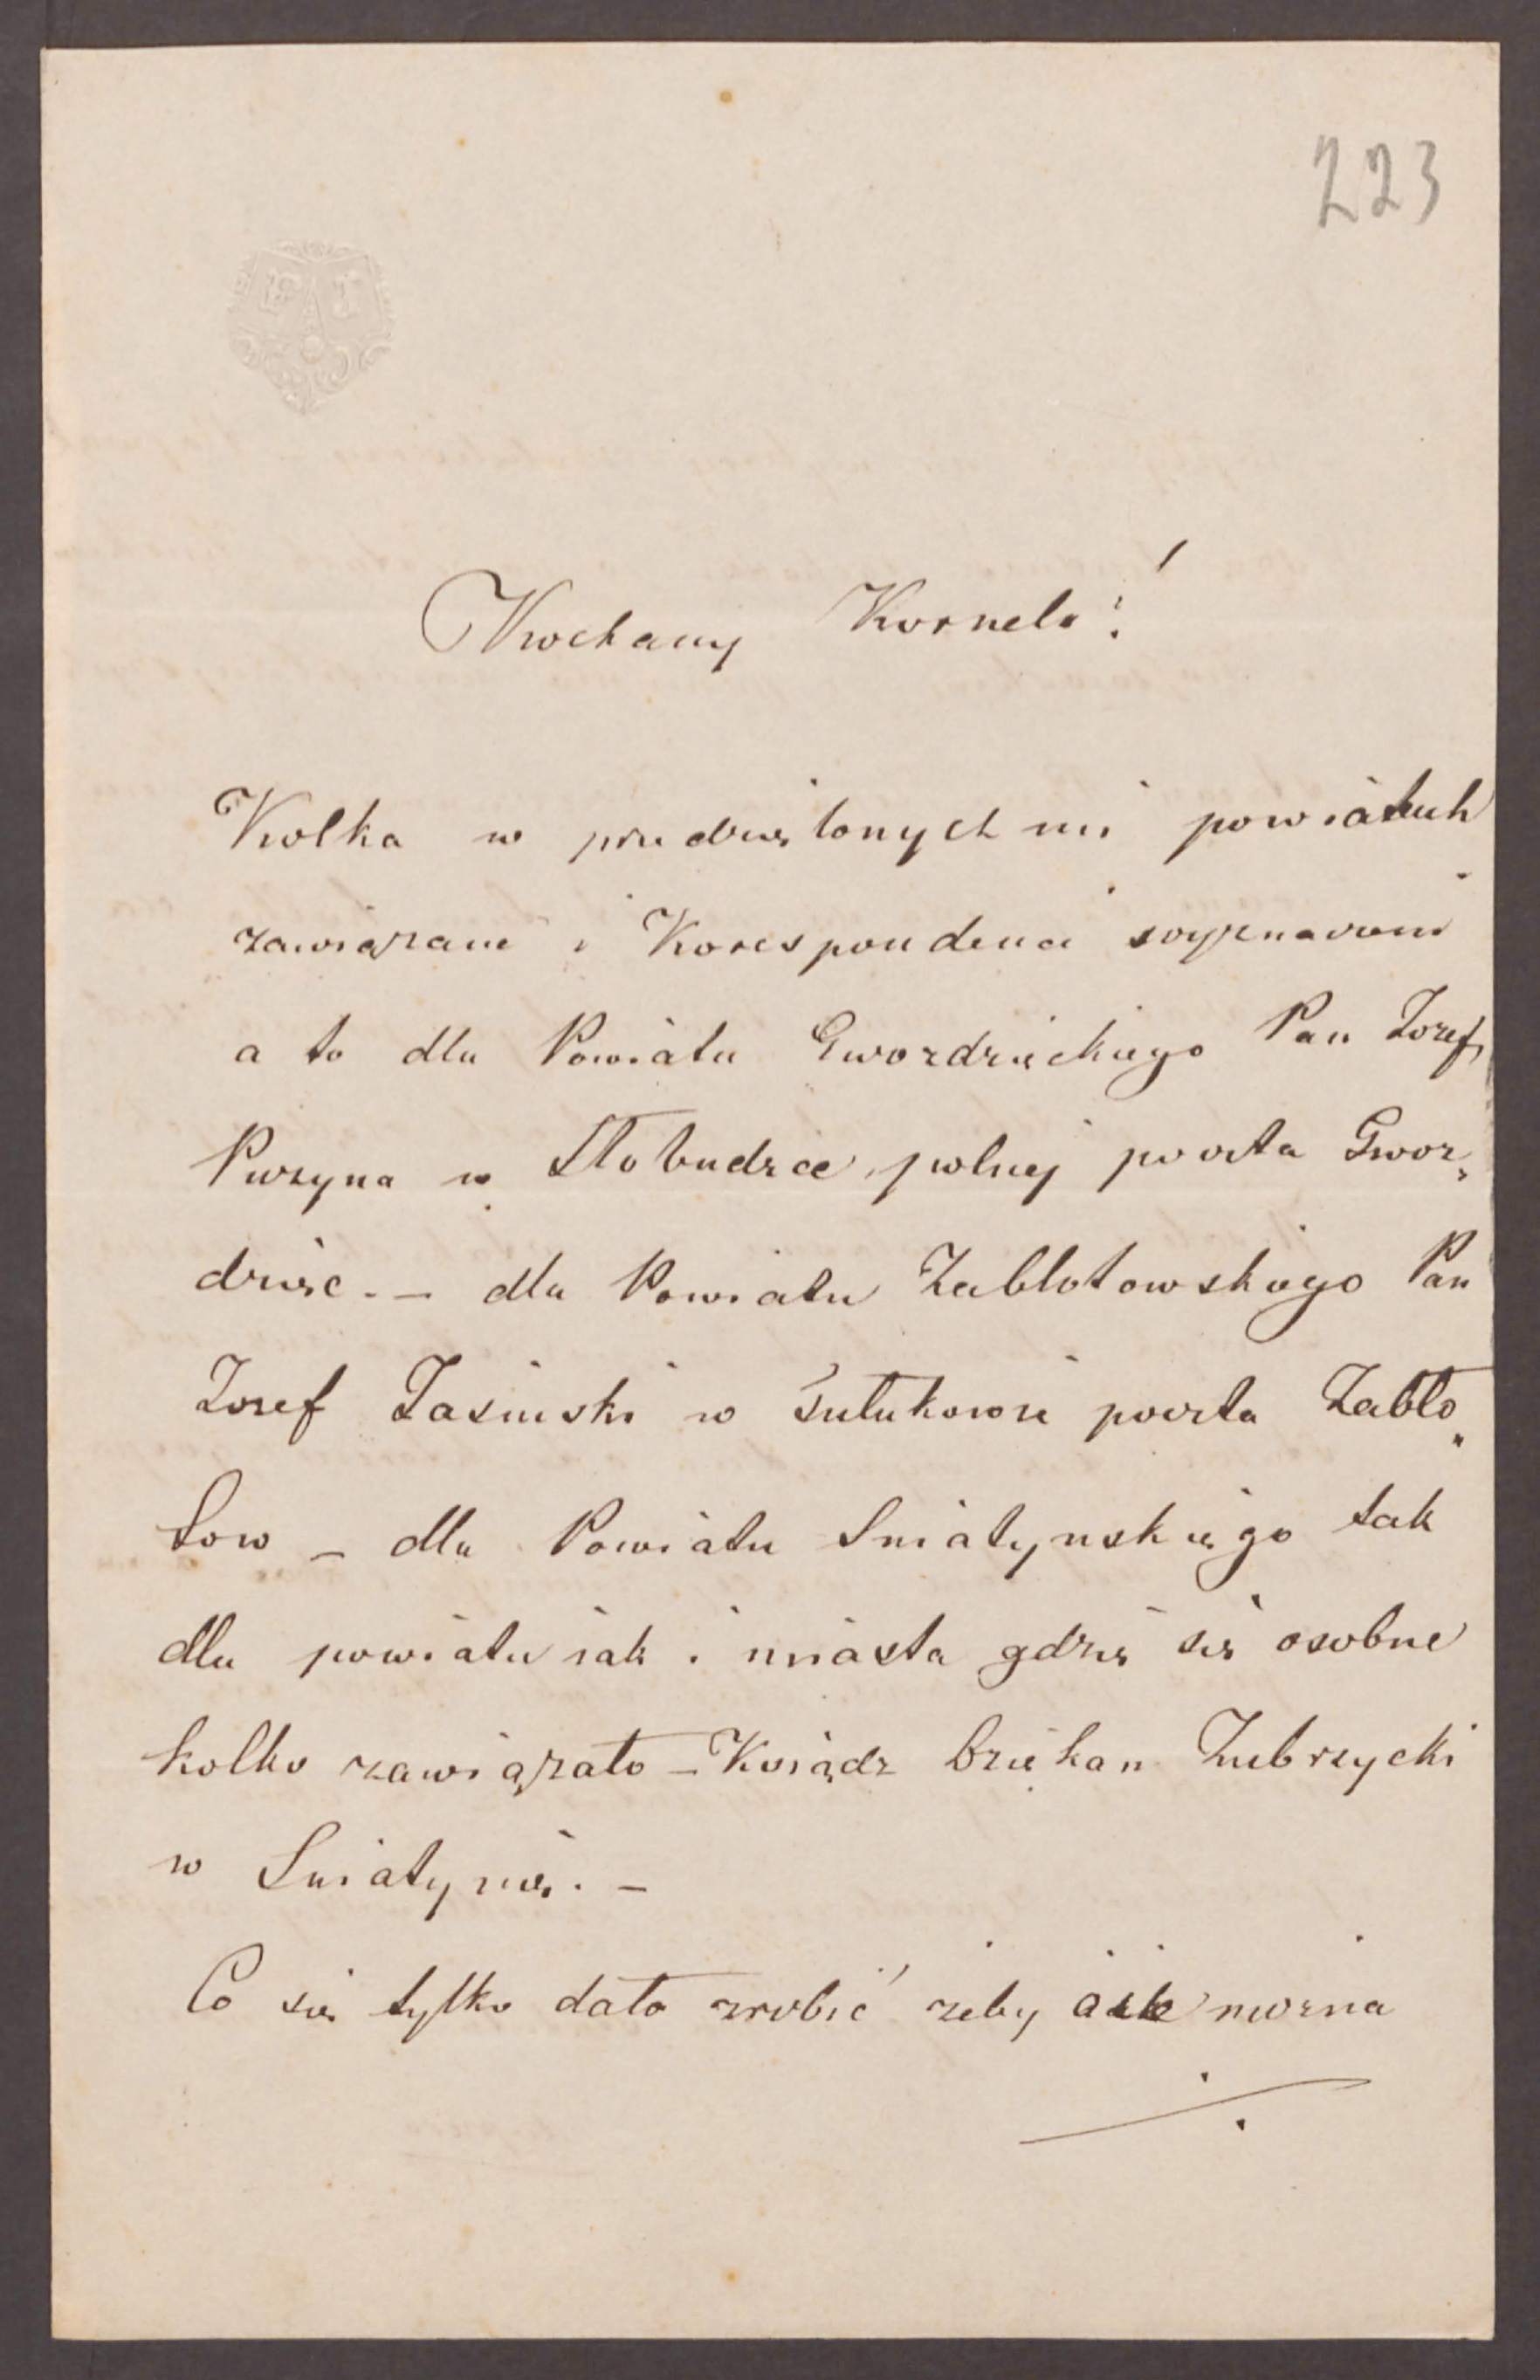 223
Kochany Kornelu!
Kolka w przedzielonych mi powiatach
zawiązane i Korespondenci wyznaczeni
a to dla Powiatu Gwozdzieckiego Pan Jozef
Puzyna w Słobudzce polnej poczta Gwoz„
dziec. – dla Powiatu Zabłotowskiego Pan
Jozef Jasinski w Tułukowie poczta Zabło„
tow – dla Powiatu Sniatynskiego tak
dla powiatu iak i miasta gdzie sie osobne
kolko zawiązało – Ksiądz Dziekan Zubrzycki
w Sniatynie. –
Co sie tylko dało zrobić zeby iak mozna